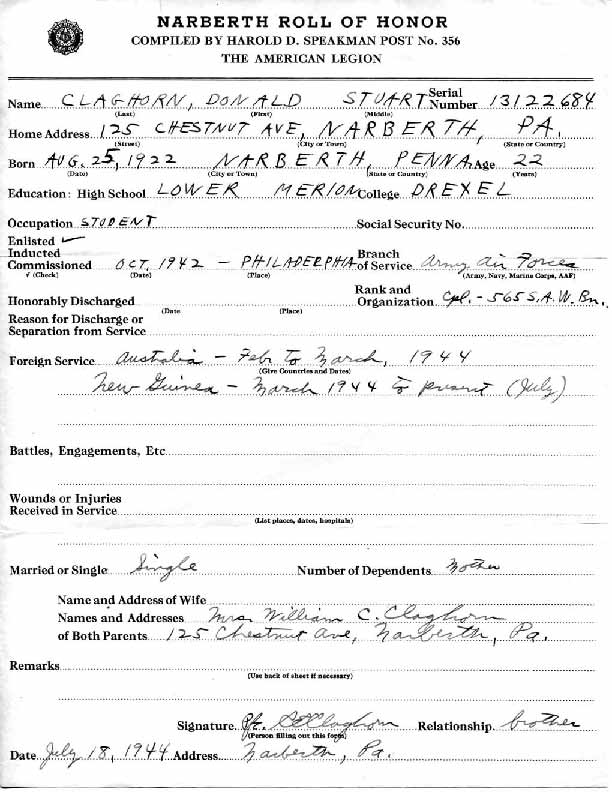 NARBERTH ROLL OF HONOR
COMPILED BY HAROLD D. SPEAKMAN POST No. 356
THE AMERICAN LEGION
Name CLAGHORN, DONALD STUART Serial Number 13122684
(Last) (First) (Middle)
Home Address 125 CHESTNUT AVE, NARBERTH, PA.
(Street) (City or Town) (State or Country)
Born AUG. 25, 1922 NARBERTH, PENNA. Age 22
(Date) (City or Town) (State or Country) (Years)
Education: High School LOWER MERION College DREXEL
Occupation STUDENT Social Security No.
Enlisted ✓
Inducted
Commissioned OCT. 1942 - PHILADERPHIA Branch of Service Army Air Forces
√ (Check) (Date) (Place) (Army, Navy, Marine Corps, AAF)
Honorably Discharged Rank and Organization Cpl. - 565 S.A.W. Bn.
(Date (Place)
Reason for Discharge or
Separation from Service
Foreign Service Australia - Feb. to March, 1944
(Give Countries and Dates)
New Guinea - March 1944 to present (July)
Battles, Engagements, Etc
Wounds or Injuries
Received in Service
(List places, dates, hospitals)
Married or Single Single Number of Dependents Mother
Name and Address of Wife
Names and Addresses Mrs. William C. Claghorn
of Both Parents 125 Chestnut Ave, Narberth, Pa.
Remarks
(Use back of sheet if necessary)
Signature Pfc. Claghorn Relationship brother
(Person filling out this form)
Date July 18, 1944 Address Narberth, Pa.